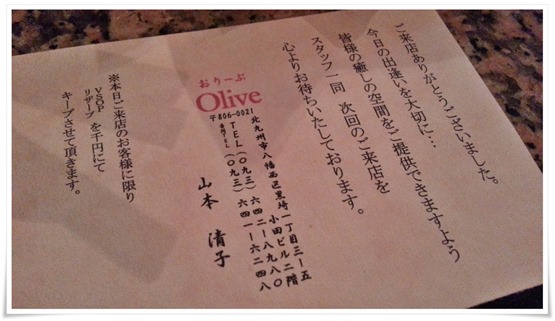 ご来店ありがとうございました。
今日の出逢いを大切に…
皆様の癒しの空間をご提供できますよう
スタッフ一同 次回のご来店を
心よりお待ちいたしております。
おりーぶ
Olive
〒806-0021
北九州市八幡西区黒崎一丁目三ー五
小田ビル二階
TEL(〇九三)六四二ー八九八〇
(〇九三)六四一ー六二四八
山本 清子
※本日ご来店のお客様に限り
VSOP
リザーブ を千円にて
キープさせて頂きます。